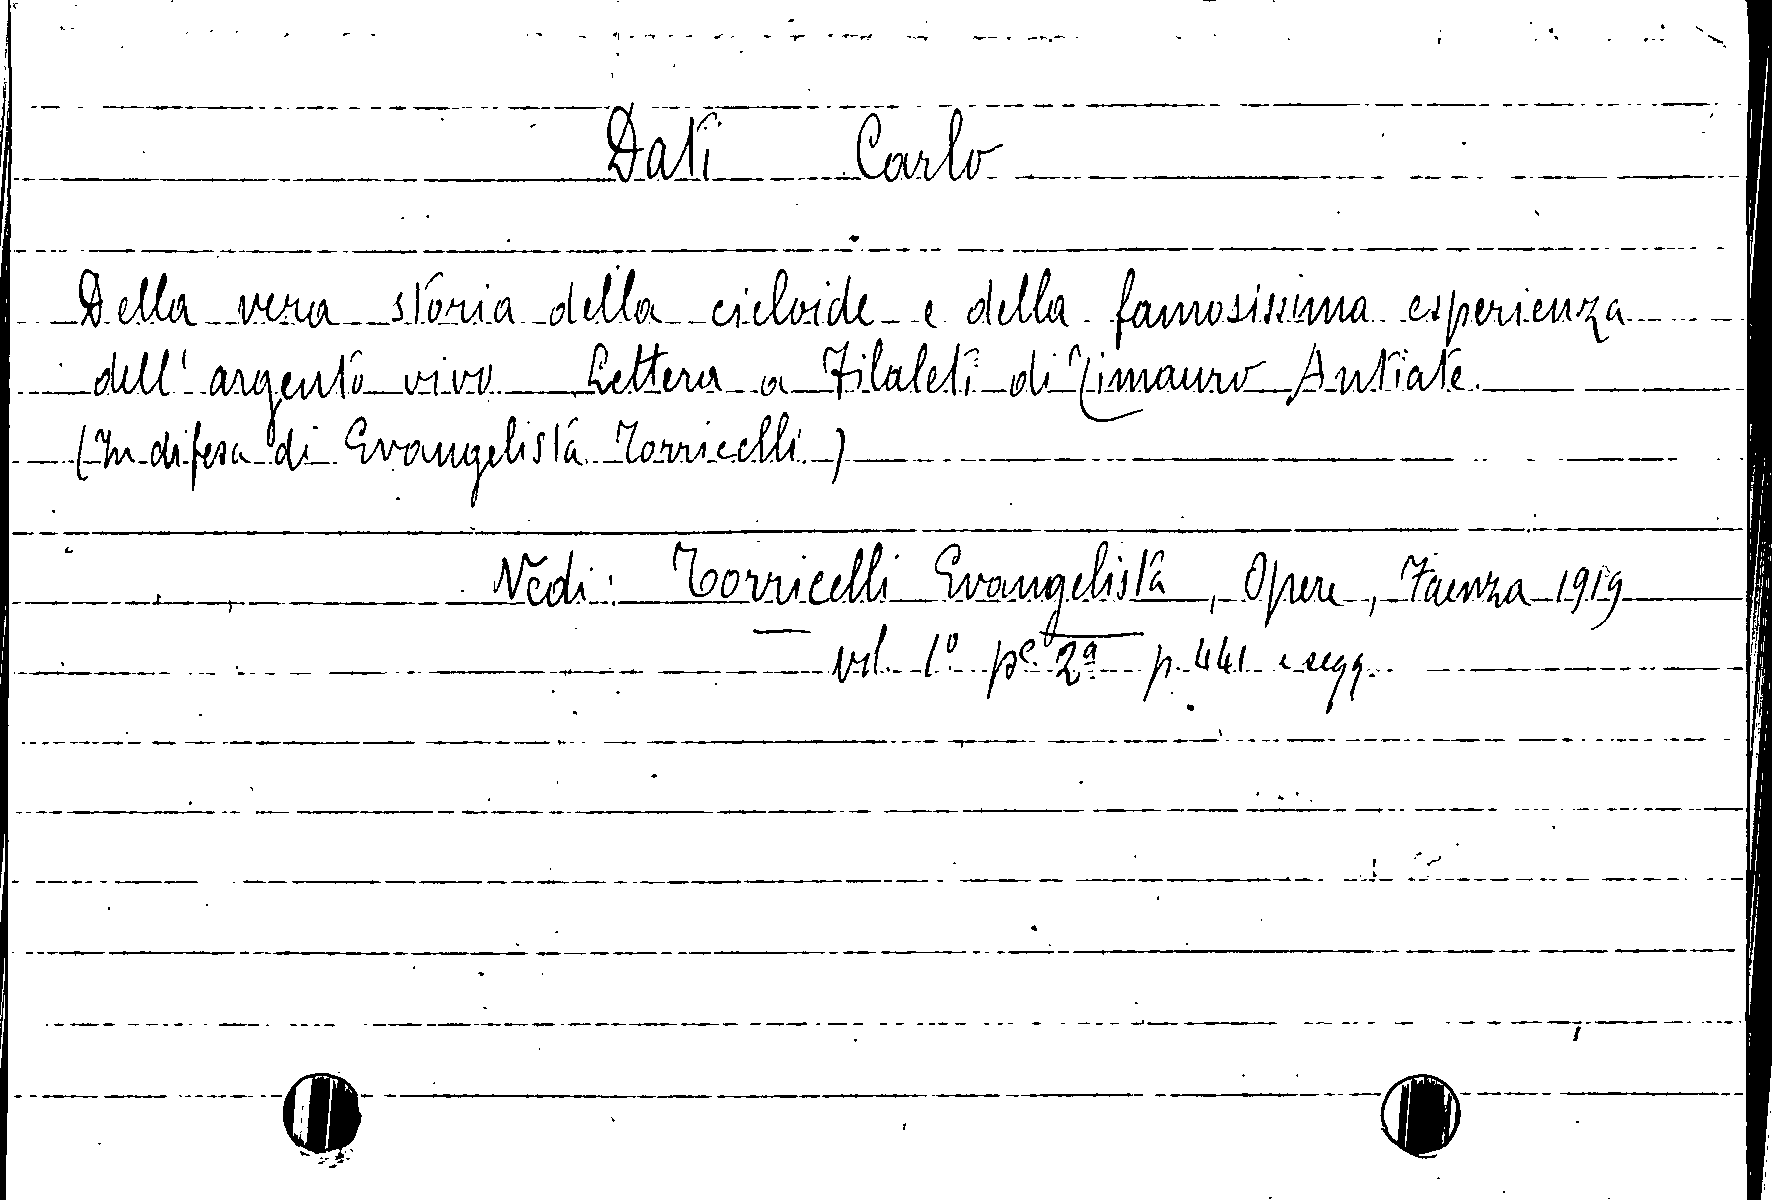 Dati Carlo
Della vera storia della cicloide e della famosissima esperienza
dell'argento vivo Lettera a Filaleti di Timauro Antiate.
(In difesa di Evangelista Torricelli)
Vedi: Torricelli Evangelista, Opere, Faenza 1919
vol. 1º pe 2ª p. 441 e segg.